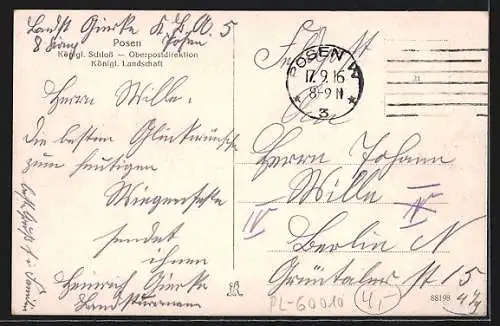 Landst Gierke K. d. A. 5
8 Komp Posen
Posen
Königl. Schloß — Oberpostdirektion
Königl. Landschaft
Herrn Wille.
Die besten Glückwünsche
zum heutigen
Wiegenfeste
sendet
ihnen
Heinrich Gierke
Landsturmmann
Feldpost
POSEN W
17.9.16
8-9 N
* 3 *
An
Herrn Johann
Wille
IV IV
Berlin N
Grüntaler st 15
88198
PL-60010
4,-